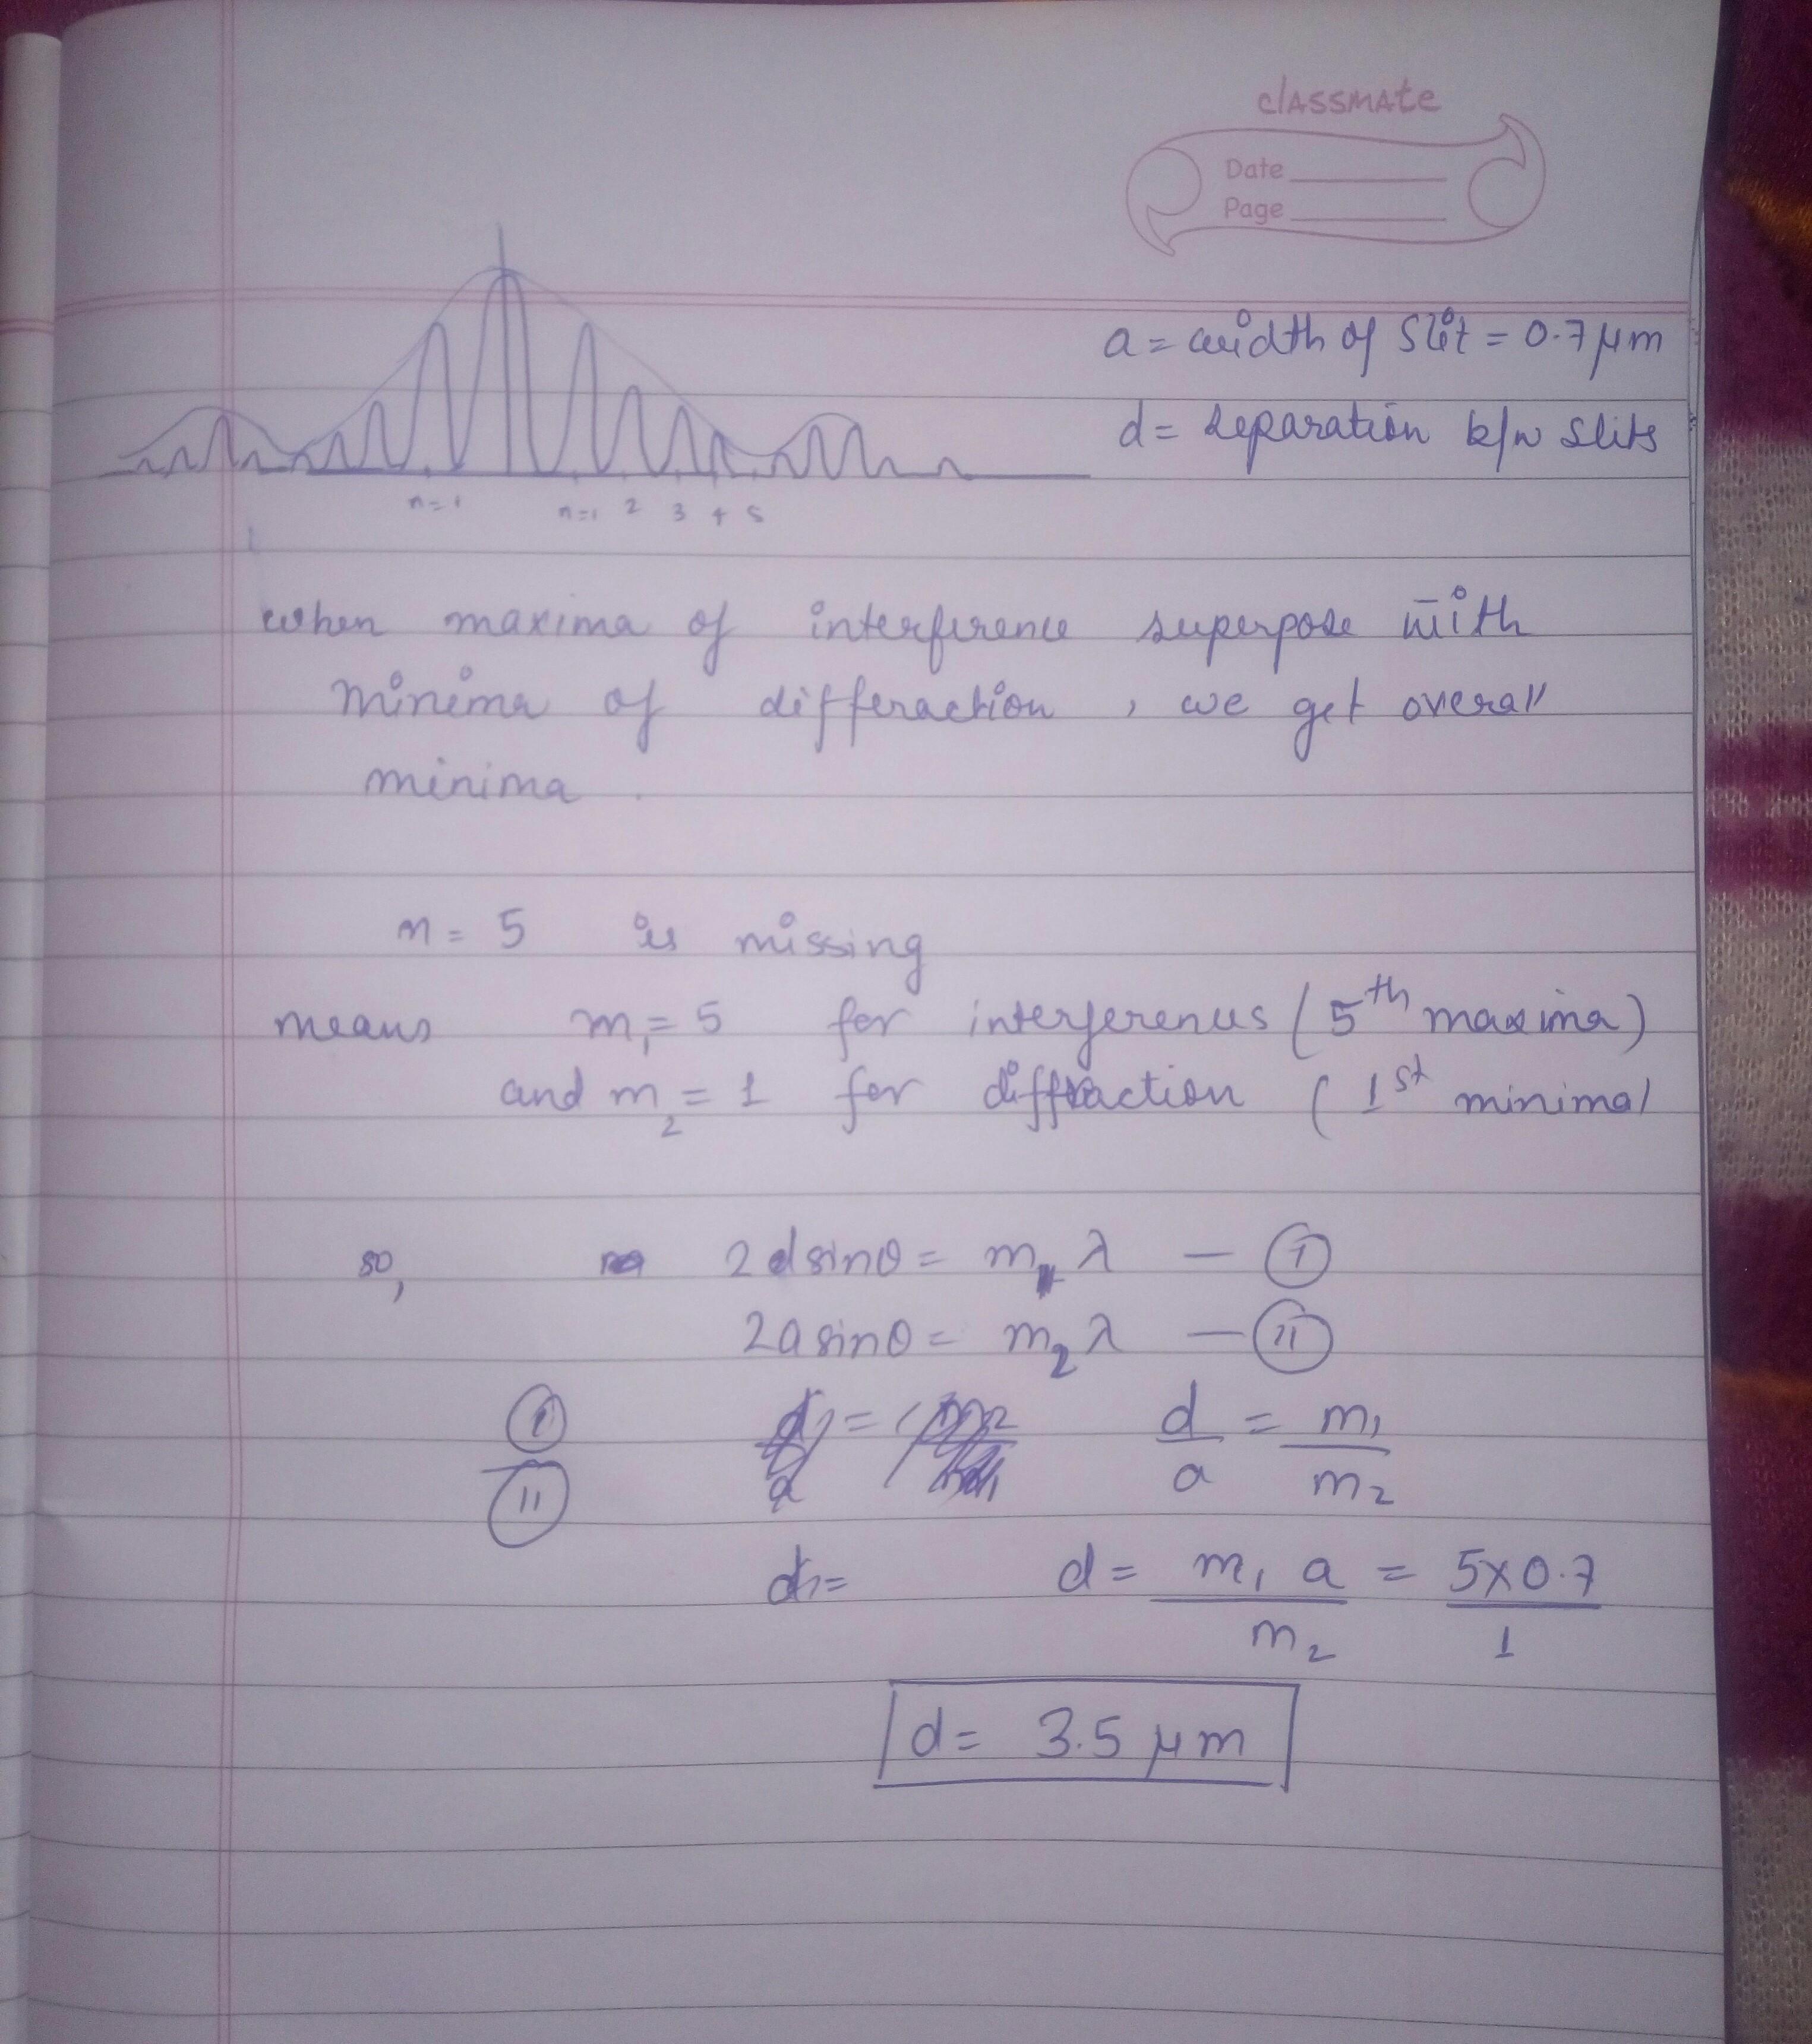 classmate
Date
Page
a = width of slit = 0.7 μm
d = separation b/w slits
n=1 n=1 2 3 4 5
when maxima of interference superpose with
minima of differaction , we get overall
minima .
n = 5 is missing
means m₁ = 5 for interferenus ( 5th maxima )
and m₂ = 1 for diffraction ( 1st minima )
so, 2dsinθ = m₁ λ — (I)
2asinθ = m₂ λ — (II)
(I) d/a = m₁/m₂
(II)
d₁= d = m₁ a / m₂ = 5×0.7 / 1
d = 3.5 μm